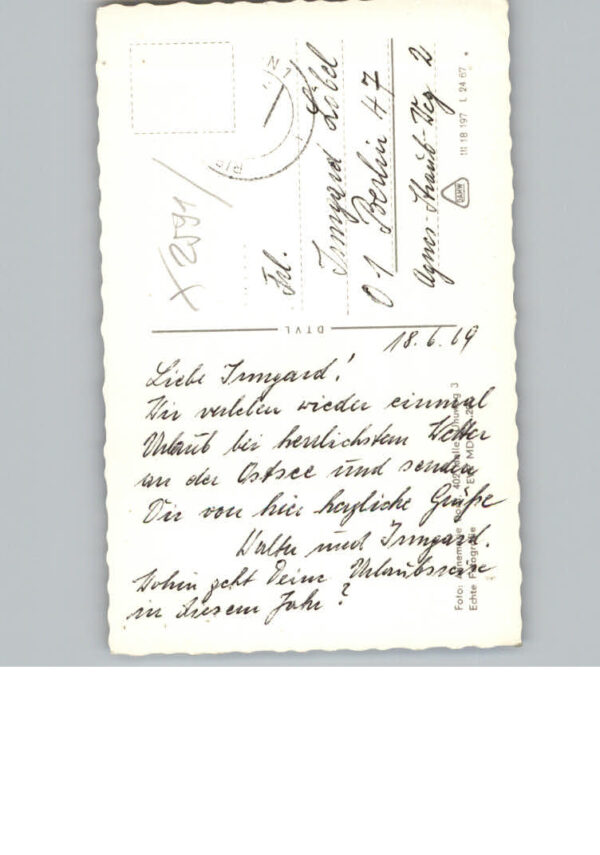 18.6.69
Liebe Irmgard!
Wir verleben wieder einmal
Urlaub bei herrlichstem Wetter
an der Ostsee und senden
Dir von hier herzliche Grüße
Walter und Irmgard.
Wohin geht Deine Urlaubsreise
in diesem Jahr?
DTVL
Frl.
Irmgard Löbel
01 Berlin 47
Agnes-Straub-Weg 2
III 18 197 L 24 67 *
X 2591/
Foto: 402 3
Echte Fotografie